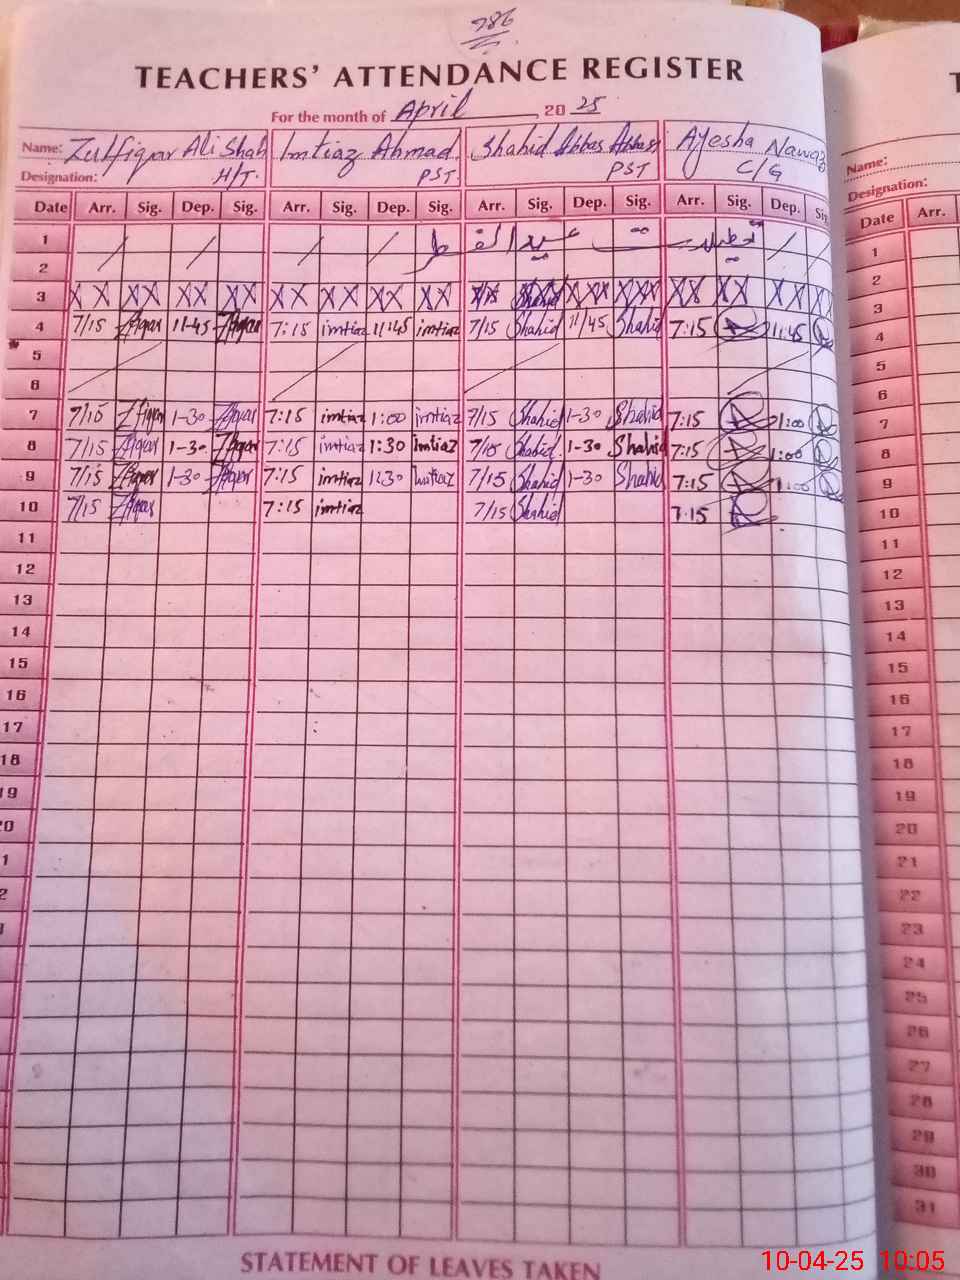 786
TEACHERS' ATTENDANCE REGISTER
For the month of April, 20 25
Name: Zulfiqar Ali Shah Imtiaz Ahmad Shahid Abbas Abbasi Ayesha Nawaz
Designation: H/T. PST PST C/G
Date Arr. Sig. Dep. Sig. Arr. Sig. Dep. Sig. Arr. Sig. Dep. Sig. Arr. Sig. Dep. Si
1 تعطیلات عید الفطر
2
3 Shahid
4 7/15 Zfiqar 11-45 Zfiqar 7:15 imtiaz 11:45 imtiaz 7/15 Shahid 11/45 Shahid 7:15 11:45
5
6
7 7/15 Zfiqar 1-30 Zfiqar 7:15 imtiaz 1:00 imtiaz 7/15 Shahid 1-30 Shahid 7:15 1:00
8 7/15 Zfiqar 1-30 Zfiqar 7:15 imtiaz 1:30 imtiaz 7/15 Shahid 1-30 Shahid 7:15 1:00
9 7/15 Zfiqar 1-30 Zfiqar 7:15 imtiaz 1:30 imtiaz 7/15 Shahid 1-30 Shahid 7:15 1:00
10 7/15 Zfiqar 7:15 imtiaz 7/15 Shahid 7:15
11
12
13
14
15
16
17
18
19
20
1
2
3
STATEMENT OF LEAVES TAKEN
T
Name:
Designation:
Date Arr.
1
2
3
4
5
6
7
8
9
10
11
12
13
14
15
16
17
18
19
20
21
22
23
24
25
26
27
28
29
30
31
10-04-25 10:05